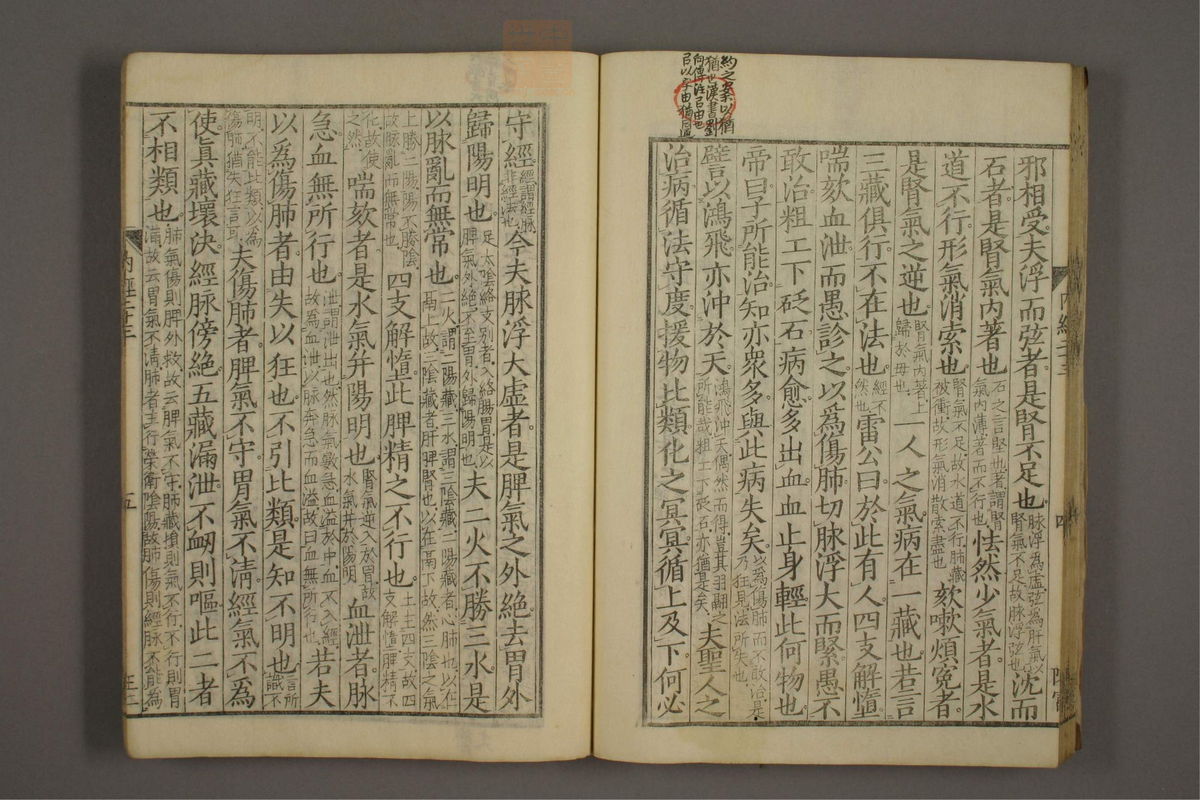 約之案以猶
猶也漢書劉
向傳注㠯由也
㠯以字由猶同
邪相受夫浮而弦者是腎不足也脉浮為虛弦為肝氣以腎氣不足故脉浮弦也沈而
石者是腎氣內著也石之言堅也著謂腎氣內薄著而不行也怯然少氣者是水
道不行形氣消索也腎氣不足故水道不行肺藏被衝故形氣消散索盡也欬嗽煩冤者
是腎氣之逆也腎氣內著上歸於母也一人之氣病在一藏也若言
三藏俱行不在法也經不然也雷公曰於此有人四支解墯
喘欬血泄而愚診之以為傷肺切脉浮大而緊愚不
敢治粗工下砭石病愈多出血血止身輕此何物也
帝曰子所能治知亦衆多與此病失矣以為傷肺而不敢治是乃狂見法所失也
譬以鴻飛亦沖於天鴻飛沖天偶然而得豈其羽翮之所能哉粗工下砭石亦猶是矣夫聖人之
治病循法守度援物比類化之冥冥循上及下何必
守經經謂經脉非經法也今夫脉浮大虛者是脾氣之外絶去胃外
歸陽明也足太陰絡支別者入絡腸胃是以脾氣外絶不至胃外歸陽明也夫二火不勝三水是
以脉亂而無常也二火謂二陽藏三水謂三陰藏二陽藏者心肺也以在鬲上故三陰藏者肝脾腎也以在鬲下故然三陰之氣
上勝二陽陽不勝陰故脉亂而無常也四支解墯此脾精之不行也土主四支故四支解墯脾精不
化故使之然喘欬者是水氣并陽明也腎氣逆入於胃故水氣并於陽明血泄者脉
急血無所行也泄謂泄出也然脉氣數急血溢於中血不入經故為血泄以脉奔急而血溢故曰血無所行也若夫
以為傷肺者由失以狂也不引比類是知不明也言所識不
明不能比類以為傷肺猶失狂言耳夫傷肺者脾氣不守胃氣不清經氣不為
使眞藏壞決經脉傍絶五藏漏泄不衂則嘔此二者
不相類也肺氣傷則脾外救故云脾氣不守肺藏損則氣不行不行則胃滿故云胃氣不清肺者主行榮衛陰陽故肺傷則經脉不能為